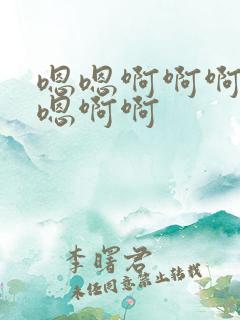 嗯嗯啊啊啊
嗯啊啊
李曙君
未经同意禁止转载